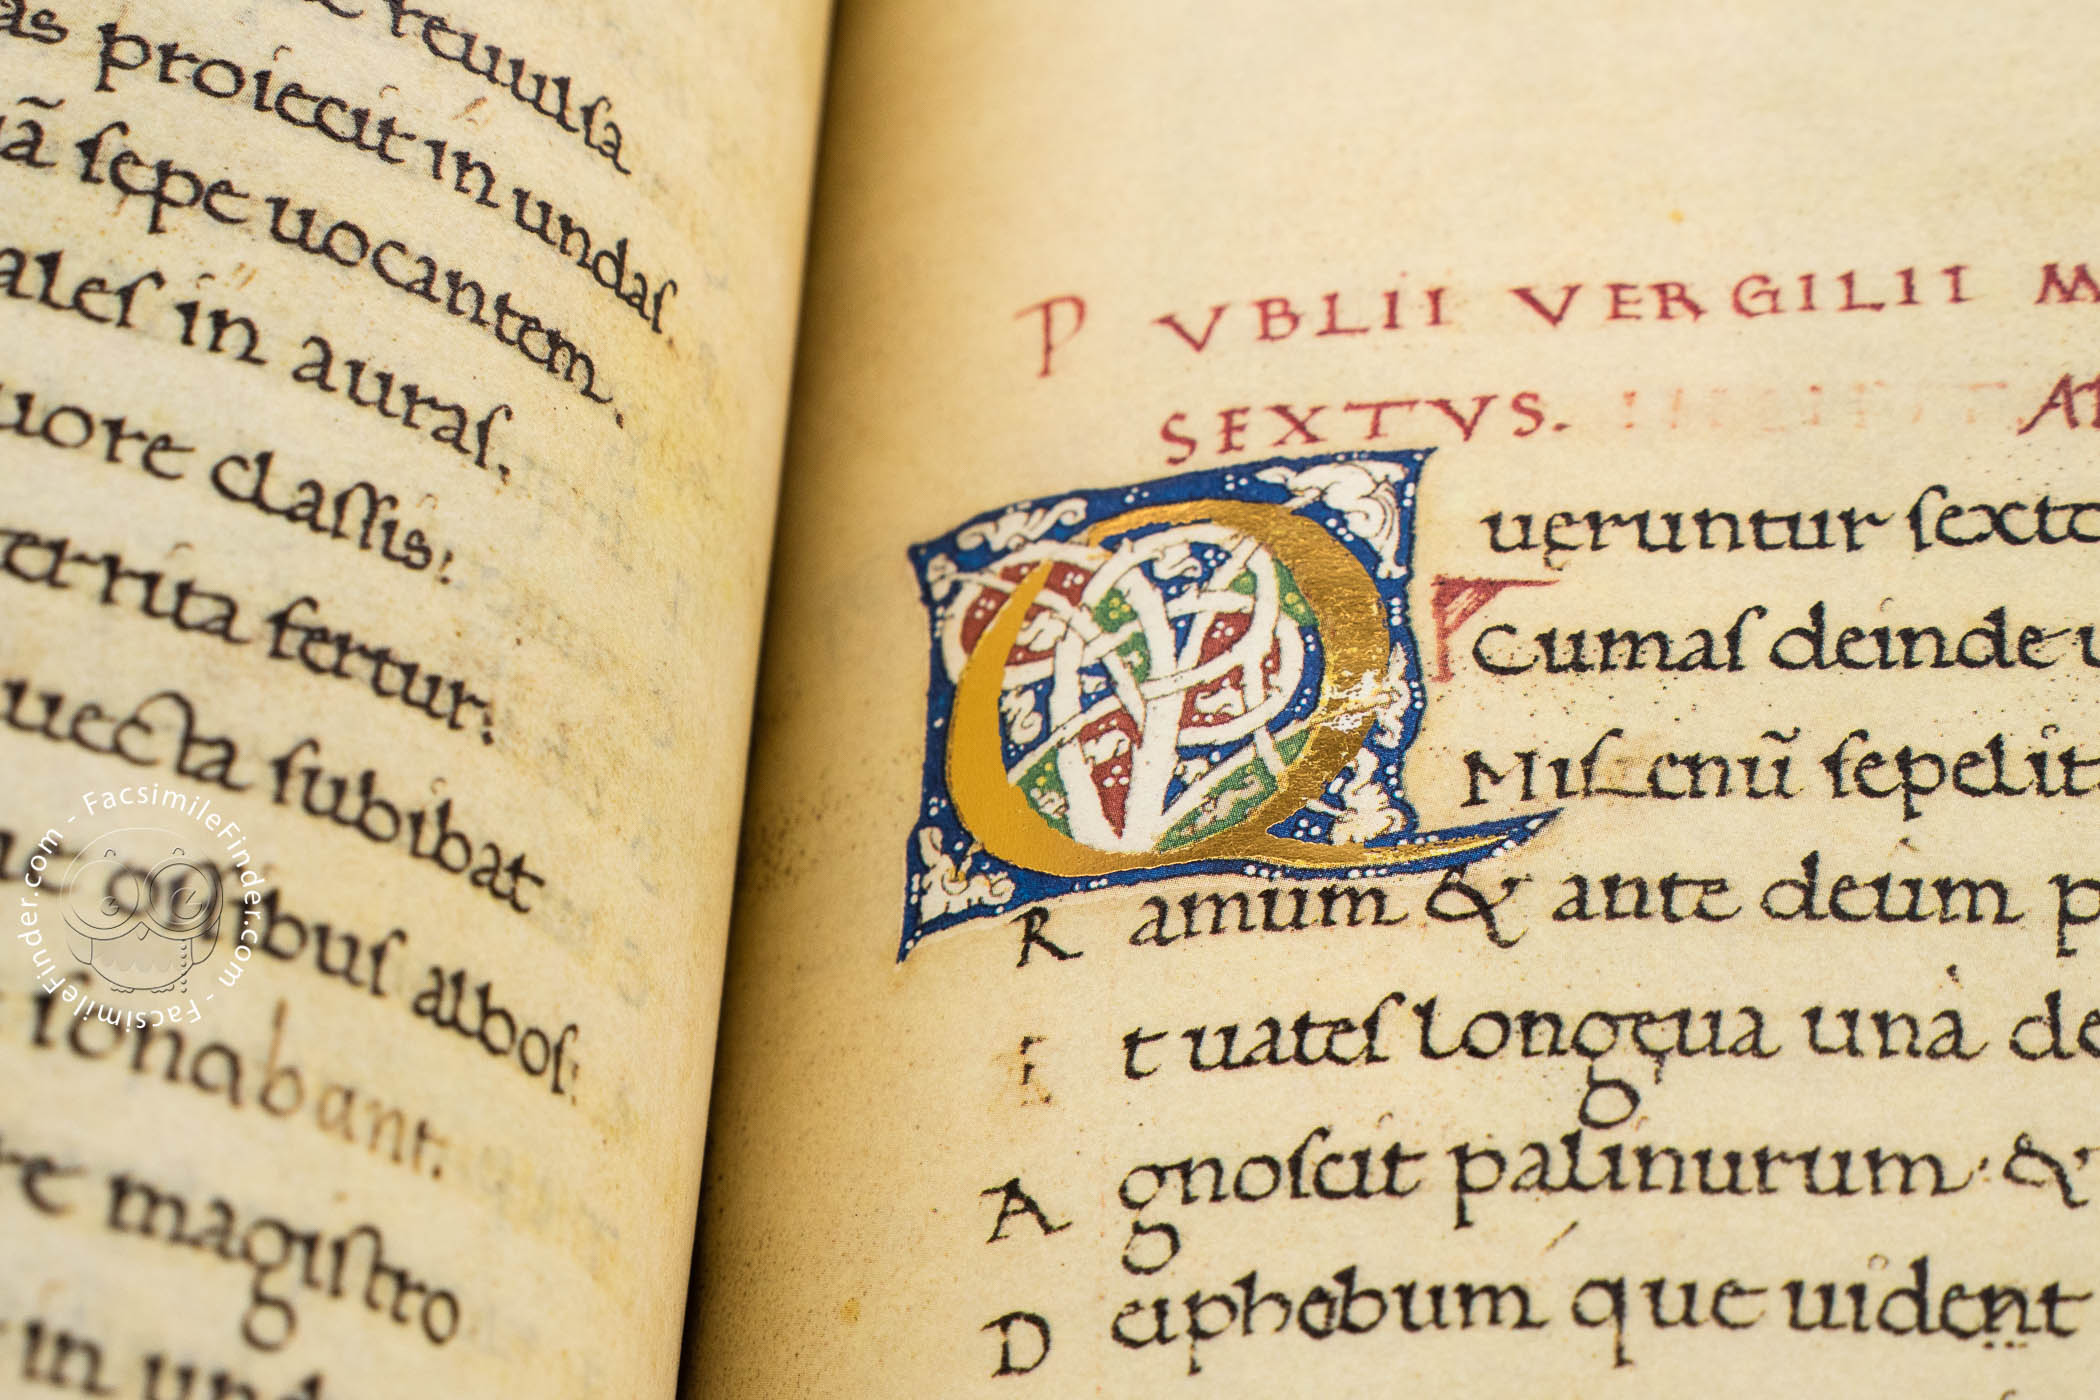 reuulſa
proiecit in undaſ.
ſepe uocantem.
in auraſ.
claſſis:
territa fertur:
uecta ſubibat
oſſibuſ alboſ:
ſonabant.
magiſtro
in
PVBLII VERGILII M
SEXTVS.
Queruntur ſexto
Cumaſ deinde u
Miſenũ ſepelit
Ramum & ante deum p
Et uateſ longęua unà de
Agnoſcit palinurum · &
Deiphobum que uident
FacsimileFinder.com - FacsimileFinder.com -